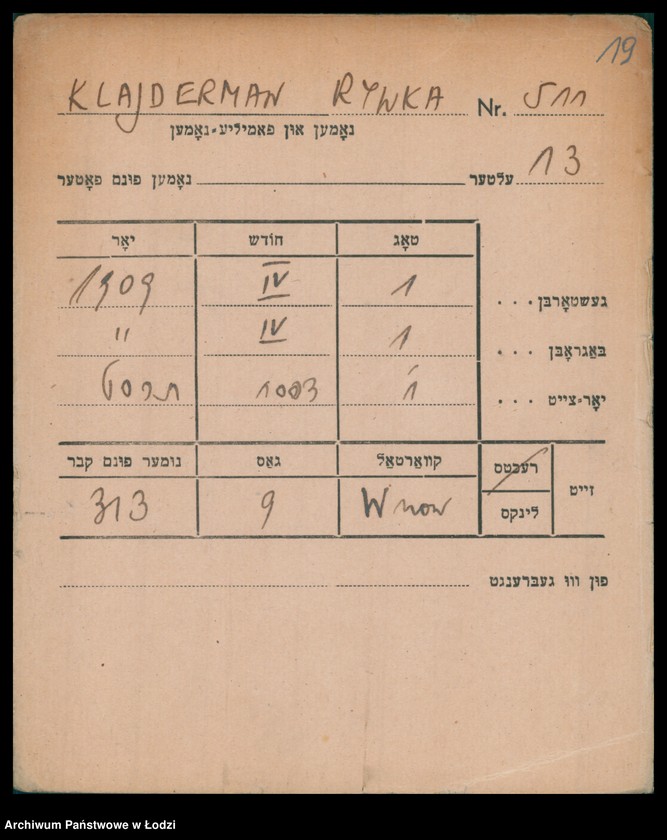 19
KLAJDERMAN RYWKA Nr. 511
נאָמען און פאַמיליע-נאָמען
13 עלטער נאָמען פונם פאָטער
טאָג חודש יאָר
געשטאָרבן . . . 1 IV 1909
באַגראָבן . . . 1 IV "
יאָר-צייט . . . י' ניסן תרסט
זייט רעכטס קוואַרטאַל גאַס נומער פונם קבר
לינקס Wnow 9 313
פון וווּ געברענגט
Archiwum Państwowe w Łodzi